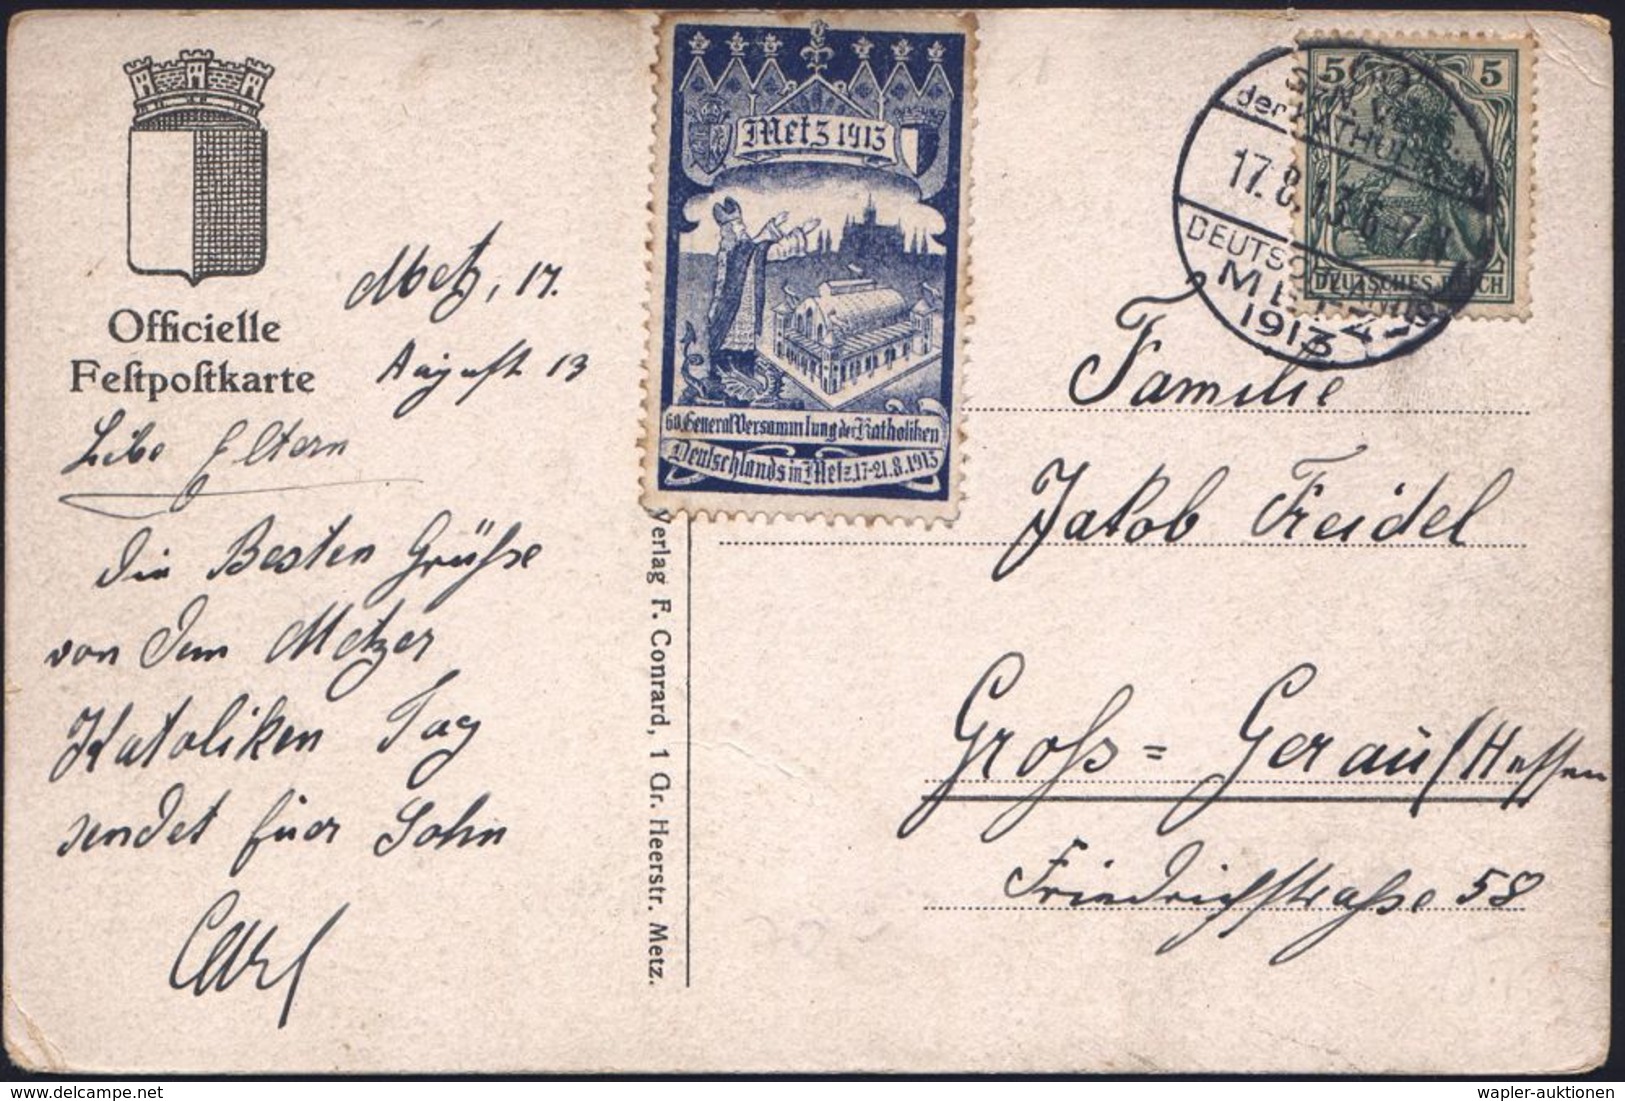 Officielle
Festpostkarte
Metz, 17.
August 13
Libe Eltern
die Besten Grüße
von dem Metzer
Katoliken Tag
sendet Euer Sohn
Carl
Metz 1913
60. General Versammlung der Katholiken
Deutschlands in Metz 17-21.8.1913
Verlag F. Conrad, 1 Gr. Heerstr. Metz.
5 5
DEUTSCHES REICH
der KATHOLIKEN
17.8.13.6-7 N
DEUTSCHLANDS
METZ
1913
Familie
Jakob Freidel
Groß=Gerau (Hessen
Friedrichstraße 58
delcampe.net
wapler-auktionen